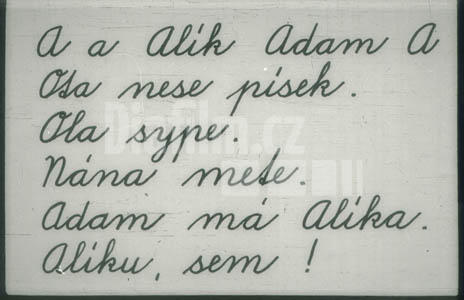 A a Alík Adam A
Ota nese písek.
Ola sype.
Nána mete.
Adam má Alíka.
Alíku, sem !
Diafilm.cz